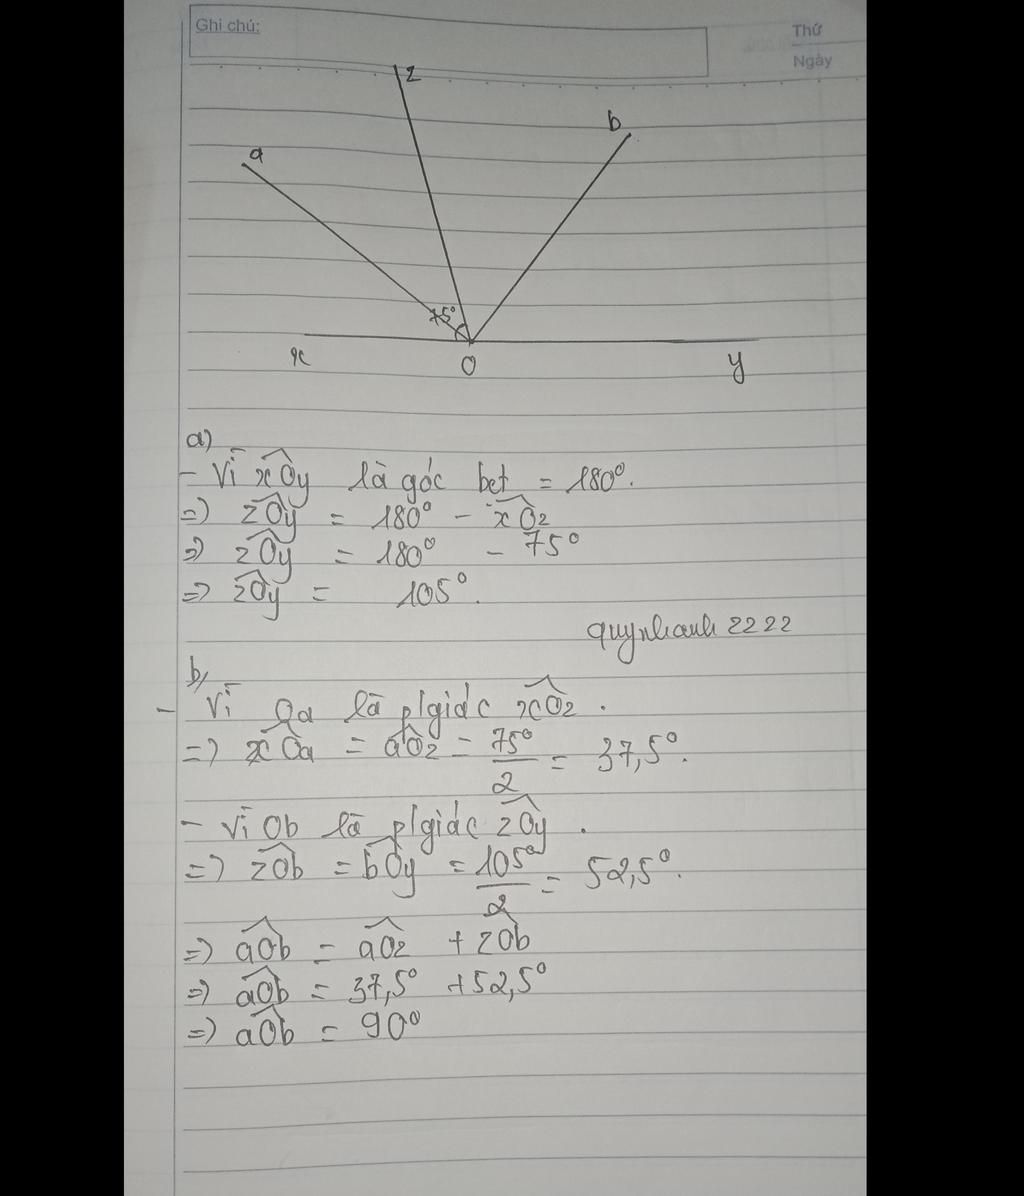 Ghi chú:
Thứ
Ngày
z
b
a
75°
x
O
y
a)
- Vì xÔy là góc bet = 180°.
=> zÔy = 180° - xÔz
=> zÔy = 180° - 75°
=> zÔy = 105°.
quynhanh 2222
b,
- Vì Oa là p/giác xÔz.
=> xÔa = aÔz = 75°/2 = 37,5°.
- Vì Ob là p/giác zÔy.
=> zÔb = bÔy = 105°/2 = 52,5°.
=> aÔb = aÔz + zÔb
=> aÔb = 37,5° + 52,5°
=> aÔb = 90°